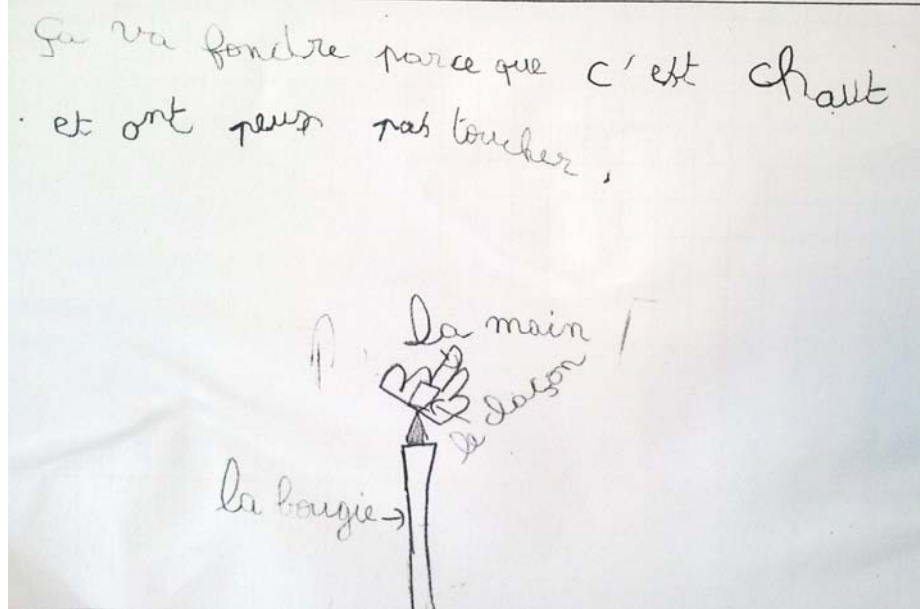 Ça va fondre parce que c'est chaut
et ont peux pas toucher.
la main
le daçon
la bougie